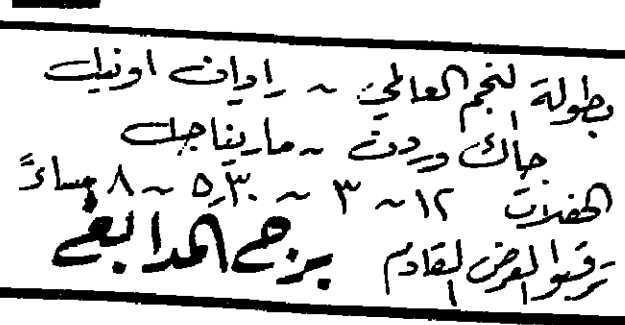 بطولة النجم العالمي ~ راداف اونيك
جاك وردن ~ ماريناجك
الحفلات ١٢ ~ ٣ ~ ٥,٣٠ ~ ٨ مساءً
ترقبوا العرض القادم برج المدابغ